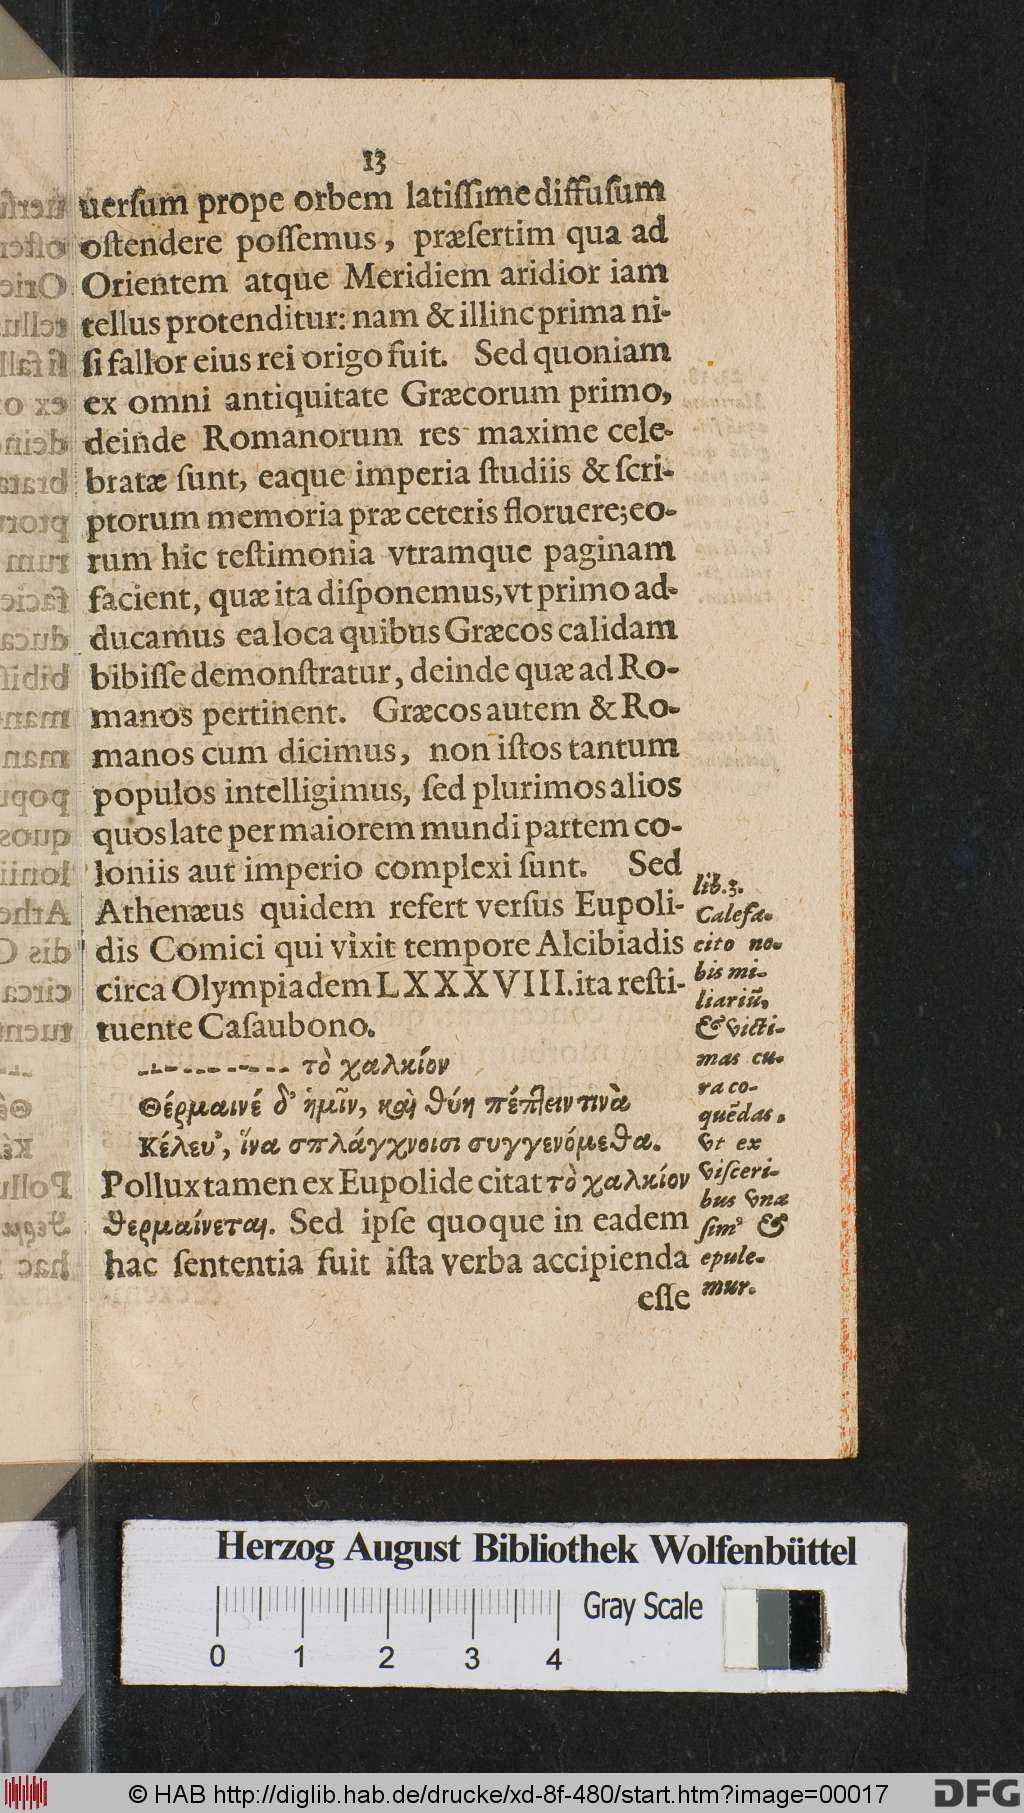 13
uerſum prope orbem latiſſime diffuſum
oſtendere poſſemus, præſertim qua ad
Orientem atque Meridiem aridior iam
tellus protenditur: nam & illinc prima ni-
ſi fallor eius rei origo fuit. Sed quoniam
ex omni antiquitate Græcorum primo,
deinde Romanorum res maxime cele-
bratæ ſunt, eaque imperia ſtudiis & ſcri-
ptorum memoria præ ceteris floruere; eo-
rum hic teſtimonia vtramque paginam
facient, quæ ita diſponemus, vt primo ad-
ducamus ea loca quibus Græcos calidam
bibiſſe demonſtratur, deinde quæ ad Ro-
manos pertinent. Græcos autem & Ro-
manos cum dicimus, non iſtos tantum
populos intelligimus, ſed plurimos alios
quos late per maiorem mundi partem co-
loniis aut imperio complexi ſunt. Sed
Athenæus quidem refert verſus Eupoli-
dis Comici qui vixit tempore Alcibiadis
circa Olympiadem LXXXVIII. ita reſti-
tuente Caſaubono.
τὸ χαλκίον
Θέρμαινέ δ' ἡμῖν, καὶ θύη πέπλειν τινὰ
Κέλευ', ἵνα σπλάγχνοισι συγγενόμεθα.
Pollux tamen ex Eupolide citat τὸ χαλκίον
θερμαίνεται. Sed ipſe quoque in eadem
hac ſententia fuit iſta verba accipienda
eſſe
lib. 3.
Calefa-
cito no-
bis mi-
liariū,
& victi-
mas cu-
ra co-
quēdas,
vt ex
viſceri-
bus vnæ
ſim⁹ &
epule-
mur.
Herzog August Bibliothek Wolfenbüttel
Gray Scale
0 1 2 3 4
© HAB http://diglib.hab.de/drucke/xd-8f-480/start.htm?image=00017
DFG